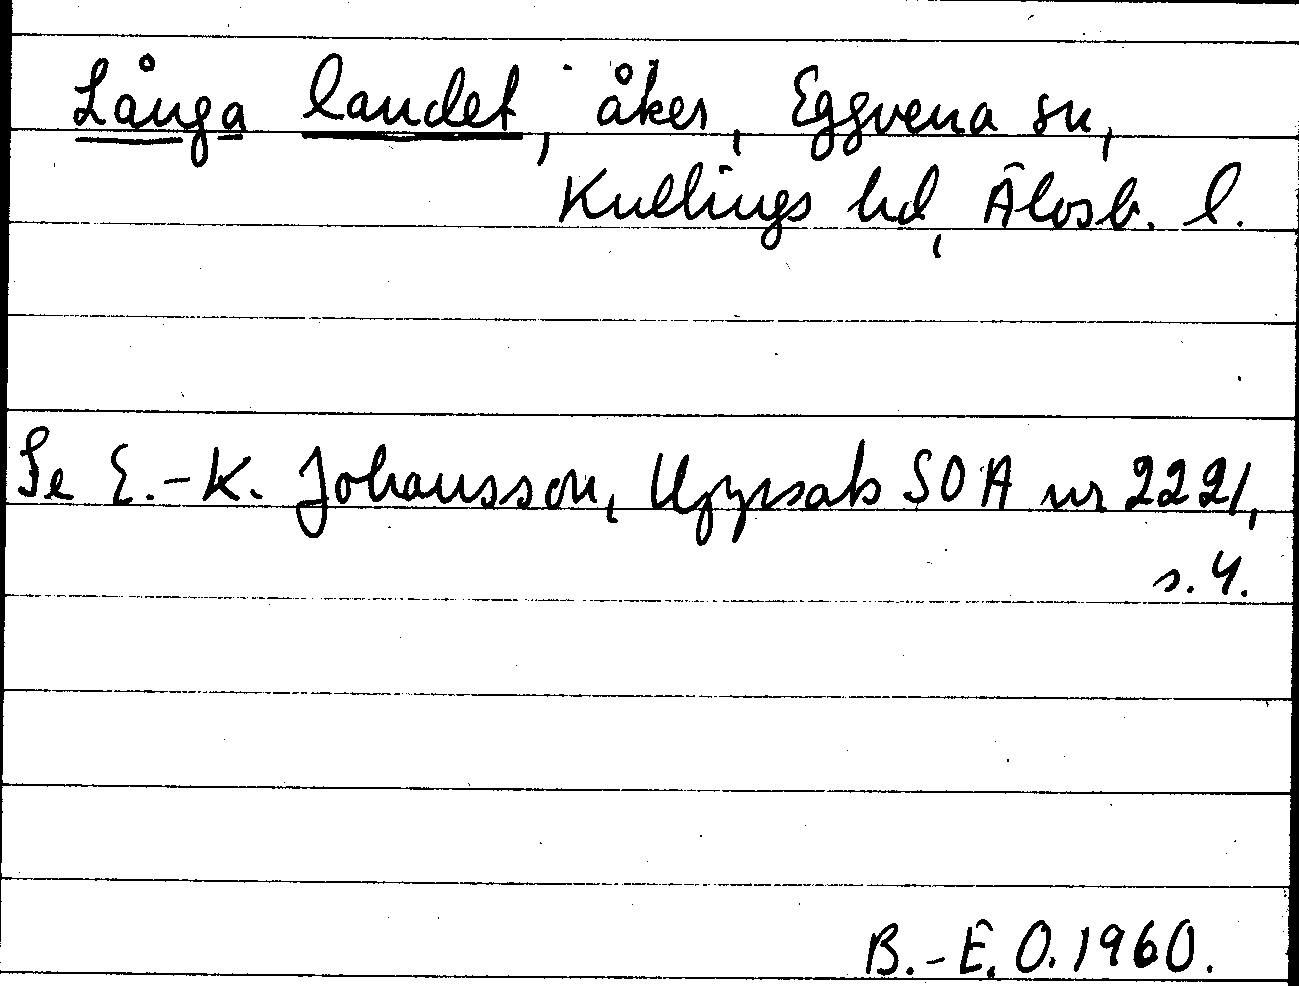 Långa landet, åker, Eggvena sn,
Kullings hd, Älvsb. l.
Se E.-K. Johansson, Uppsats SOA nr 2221,
s. 4.
B.-E. O. 1960.